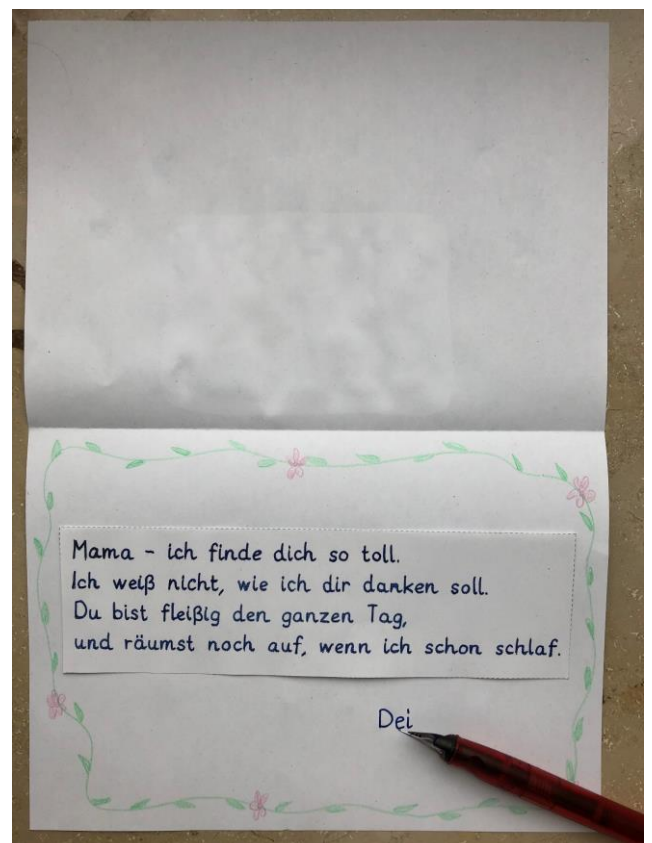 Mama - ich finde dich so toll.
Ich weiß nicht, wie ich dir danken soll.
Du bist fleißig den ganzen Tag,
und räumst noch auf, wenn ich schon schlaf.
Dei